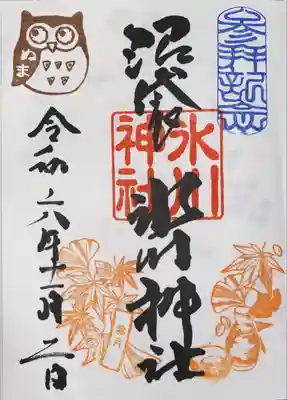 参拝記念
沼袋氷川神社
氷川
神社
ぬま
令和六年十一月二日